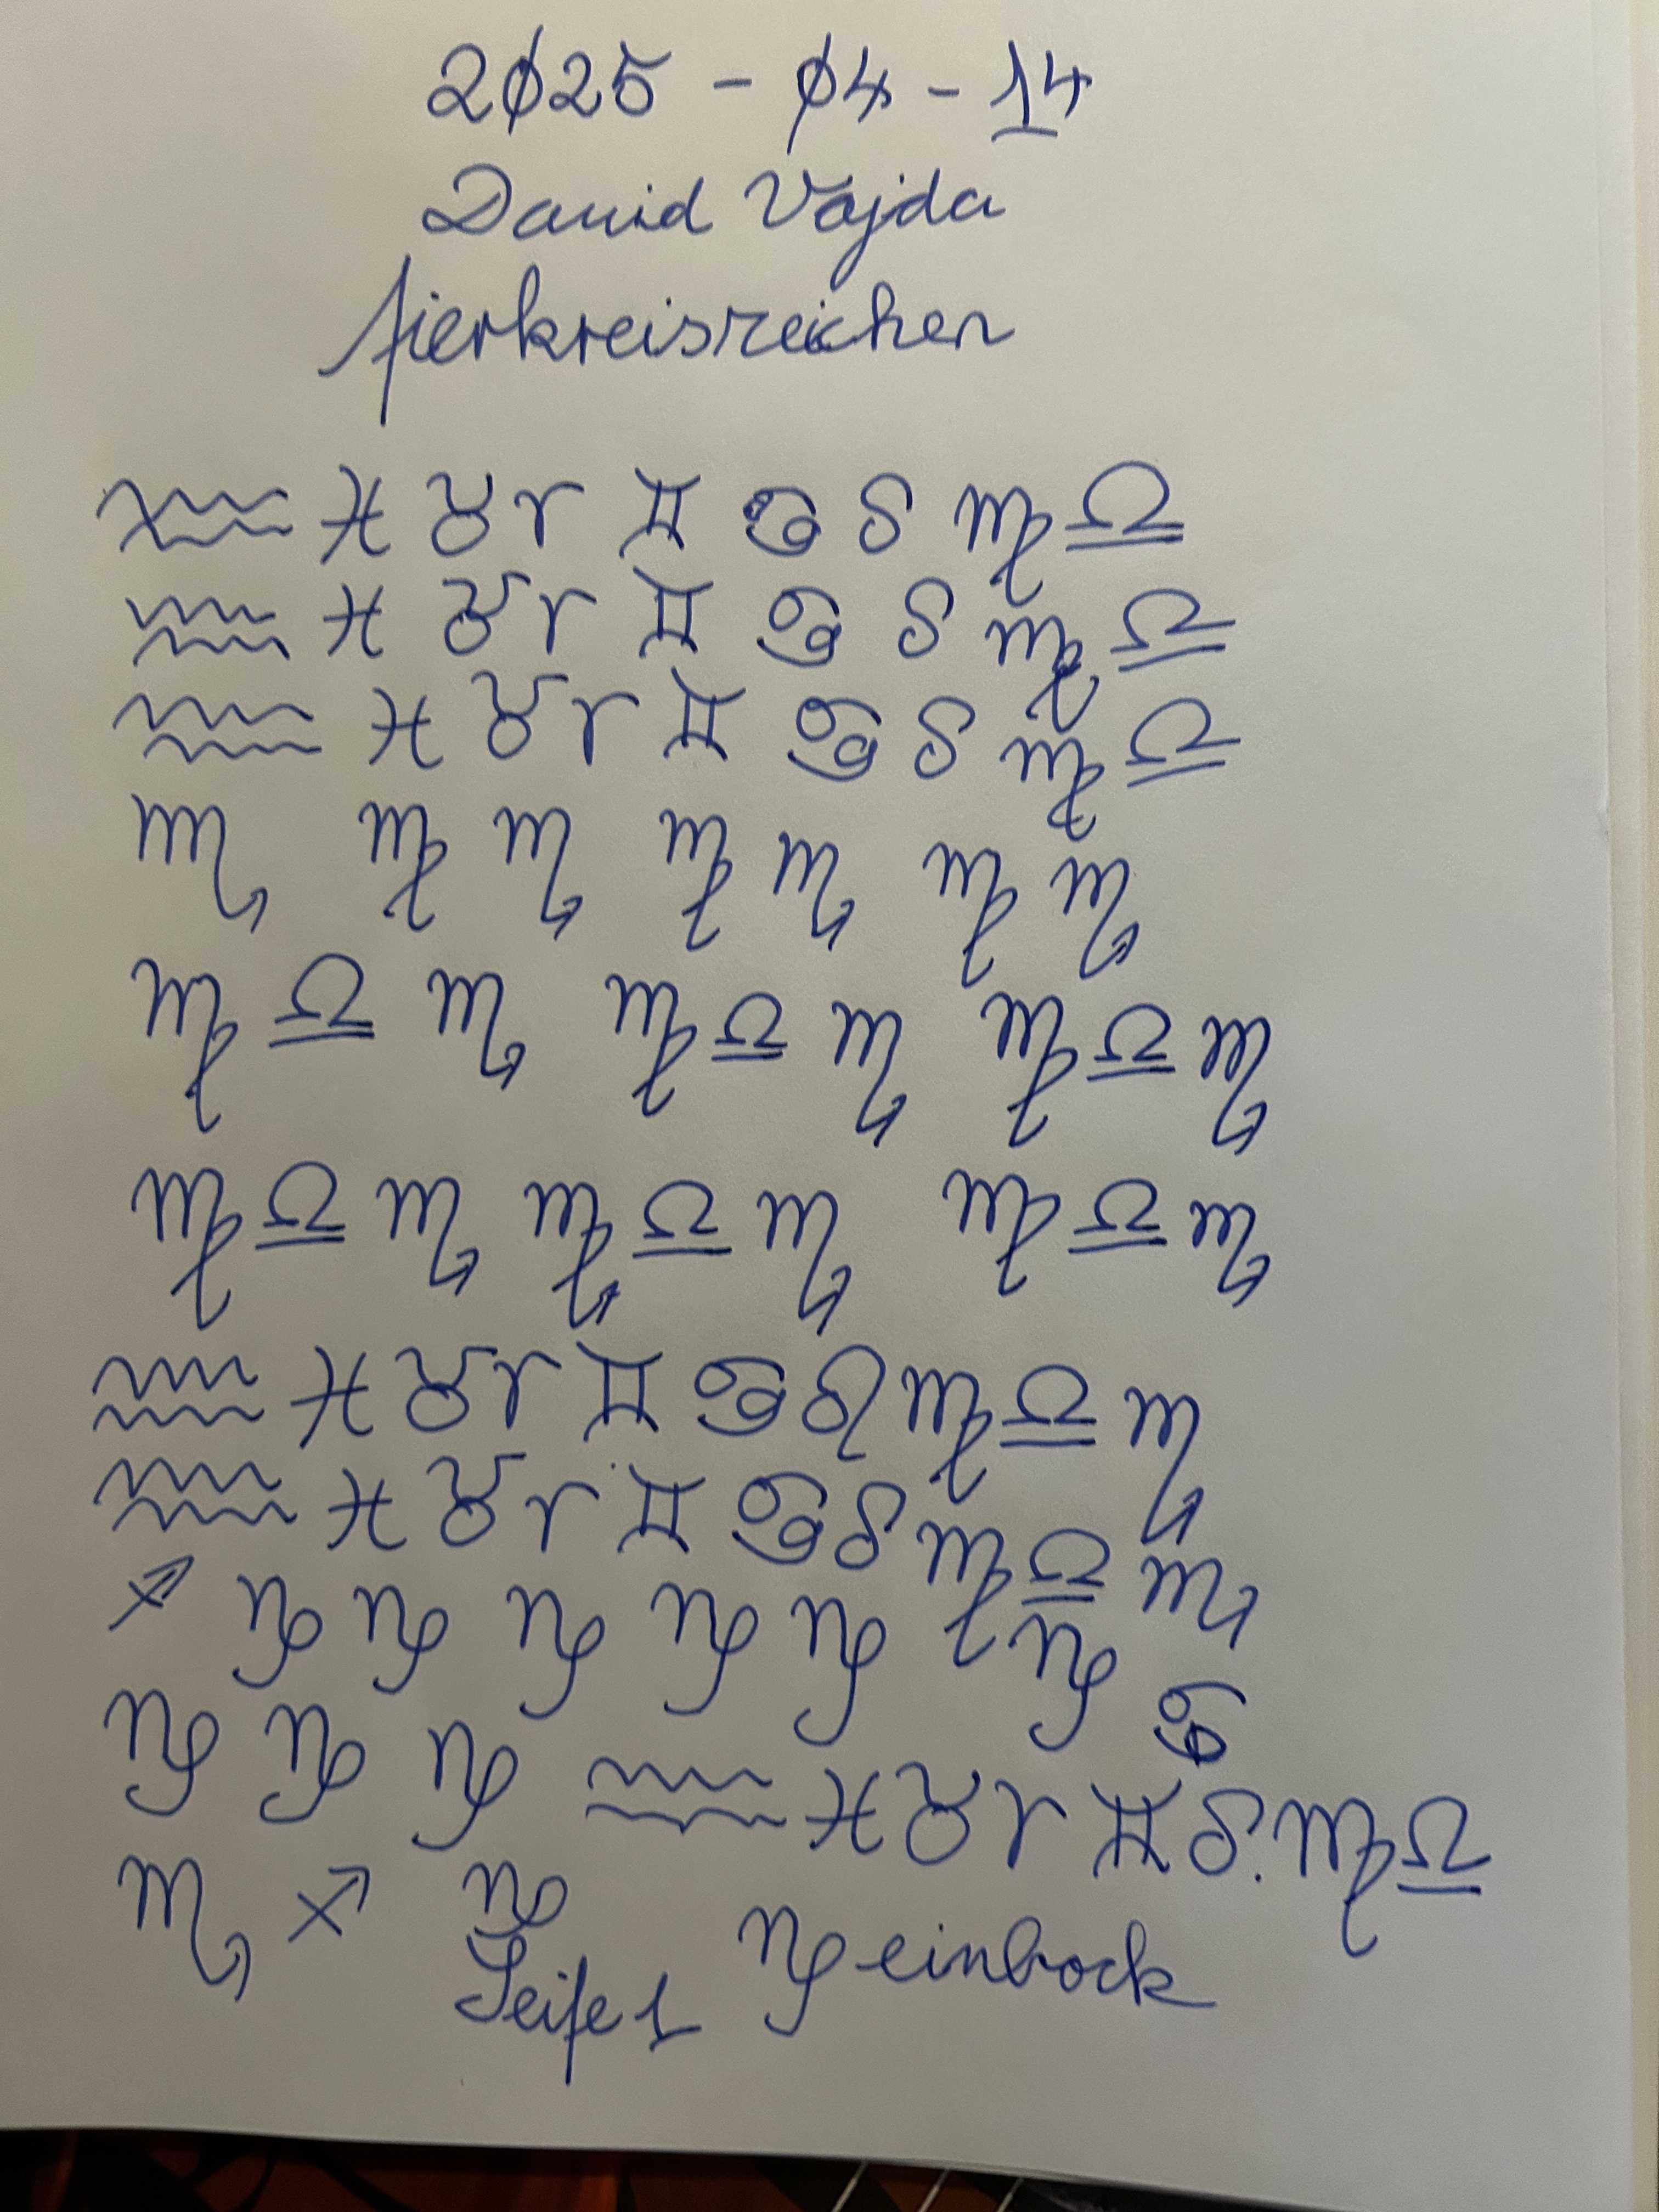 2025 - 04 - 14
David Vajda
Tierkreiszeichen
♒ ♓ ♉ ♈ ♊ ♋ ♌ ♍ ♎
♒ ♓ ♉ ♈ ♊ ♋ ♌ ♍ ♎
♒ ♓ ♉ ♈ ♊ ♋ ♌ ♍ ♎
♏ ♍ ♏ ♍ ♏ ♍ ♏
♍ ♎ ♏ ♍ ♎ ♏ ♍ ♎ ♏
♍ ♎ ♏ ♍ ♎ ♏ ♍ ♎ ♏
♒ ♓ ♉ ♈ ♊ ♋ ♌ ♍ ♎ ♏
♒ ♓ ♉ ♈ ♊ ♋ ♌ ♍ ♎ ♏
♐ ♑ ♑ ♑ ♑ ♑ ♑ ♋
♑ ♑ ♑ ♒ ♓ ♉ ♈ ♊ ♌ ♍ ♎
♏ ♐ ♑ ♑einbock
Seife 1